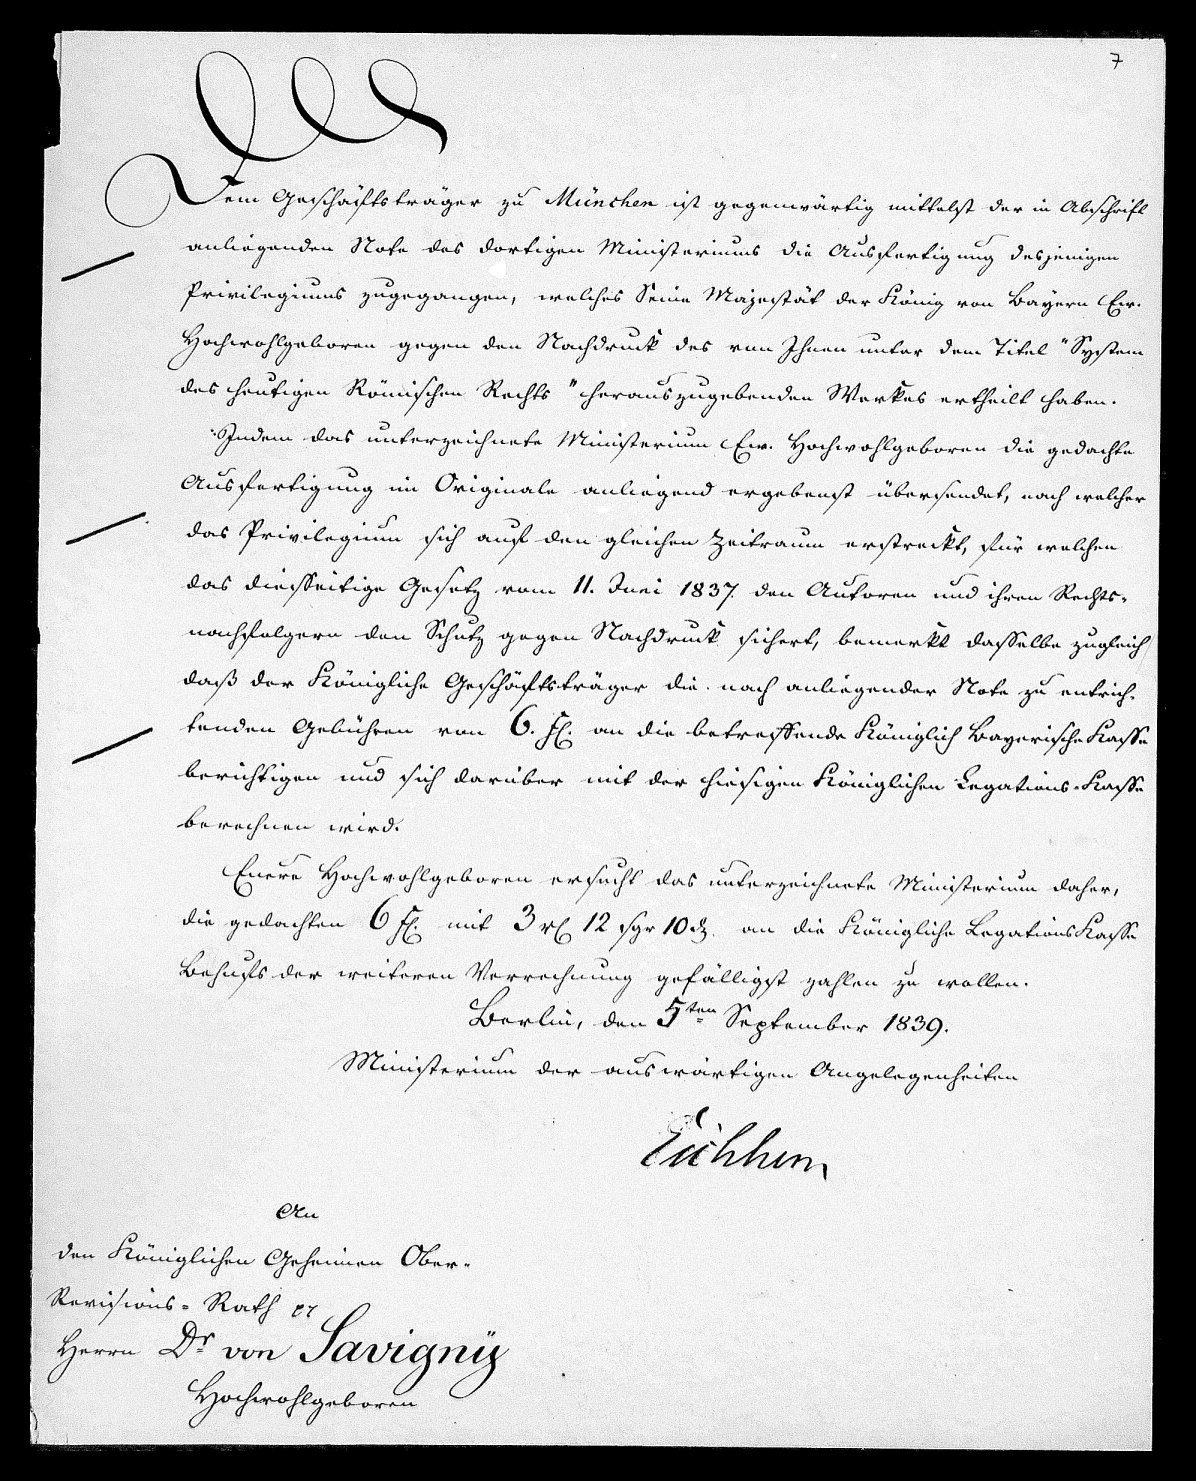 7
Dem Geschäftsträger zu München ist gegenwärtig mittelst der in Abschrift
anliegenden Note des dortigen Ministeriums die Ausfertigung desjenigen
Privilegiums zugegangen, welches Seine Majestät der König von Bayern Ew.
Hochwohlgeboren gegen den Nachdruck des von Ihnen unter dem Titel "System
des heutigen Römischen Rechts" herauszugebenden Werkes ertheilt haben.
Indem das unterzeichnete Ministerium Ew. Hochwohlgeboren die gedachte
Ausfertigung im Originale anliegend ergebenst übersendet, nach welcher
das Privilegium sich auf den gleichen Zeitraum erstreckt, für welchen
das diesseitige Gesetz vom 11. Juni 1837. den Autoren und ihren Rechts-
nachfolgern den Schutz gegen Nachdruck sichert, bemerkt dasselbe zugleich
daß der Königliche Geschäftsträger die nach anliegender Note zu entrich-
tenden Gebühren von 6. fl. an die betreffende Königlich Bayerische Kasse
berichtigen und sich darüber mit der hiesigen Königlichen Legations-Kasse
berechnen wird.
Euere Hochwohlgeboren ersucht das unterzeichnete Ministerium daher,
die gedachten 6 fl. mit 3 rl 12 sgr 10 d. an die Königliche Legations Kasse
Behufs der weiteren Verrechnung gefälligst zahlen zu wollen.
Berlin, den 5ten September 1839.
Ministerium der auswärtigen Angelegenheiten
Eichhorn
An
den Königlichen Geheimen Ober-
Revisions-Rath
Herrn Dr von Savigny
Hochwohlgeboren